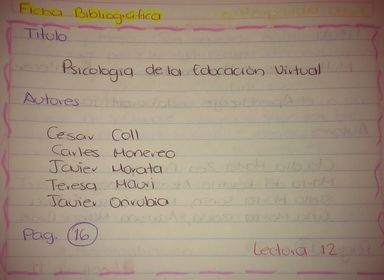 Ficha Bibliográfica
Titulo
Psicologia de la Educación Virtual
Autores
Cesar Coll
Carles Monereo
Javier Morata
Teresa Mauri
Javier Onrubia
Pag. 16
Lectura 12